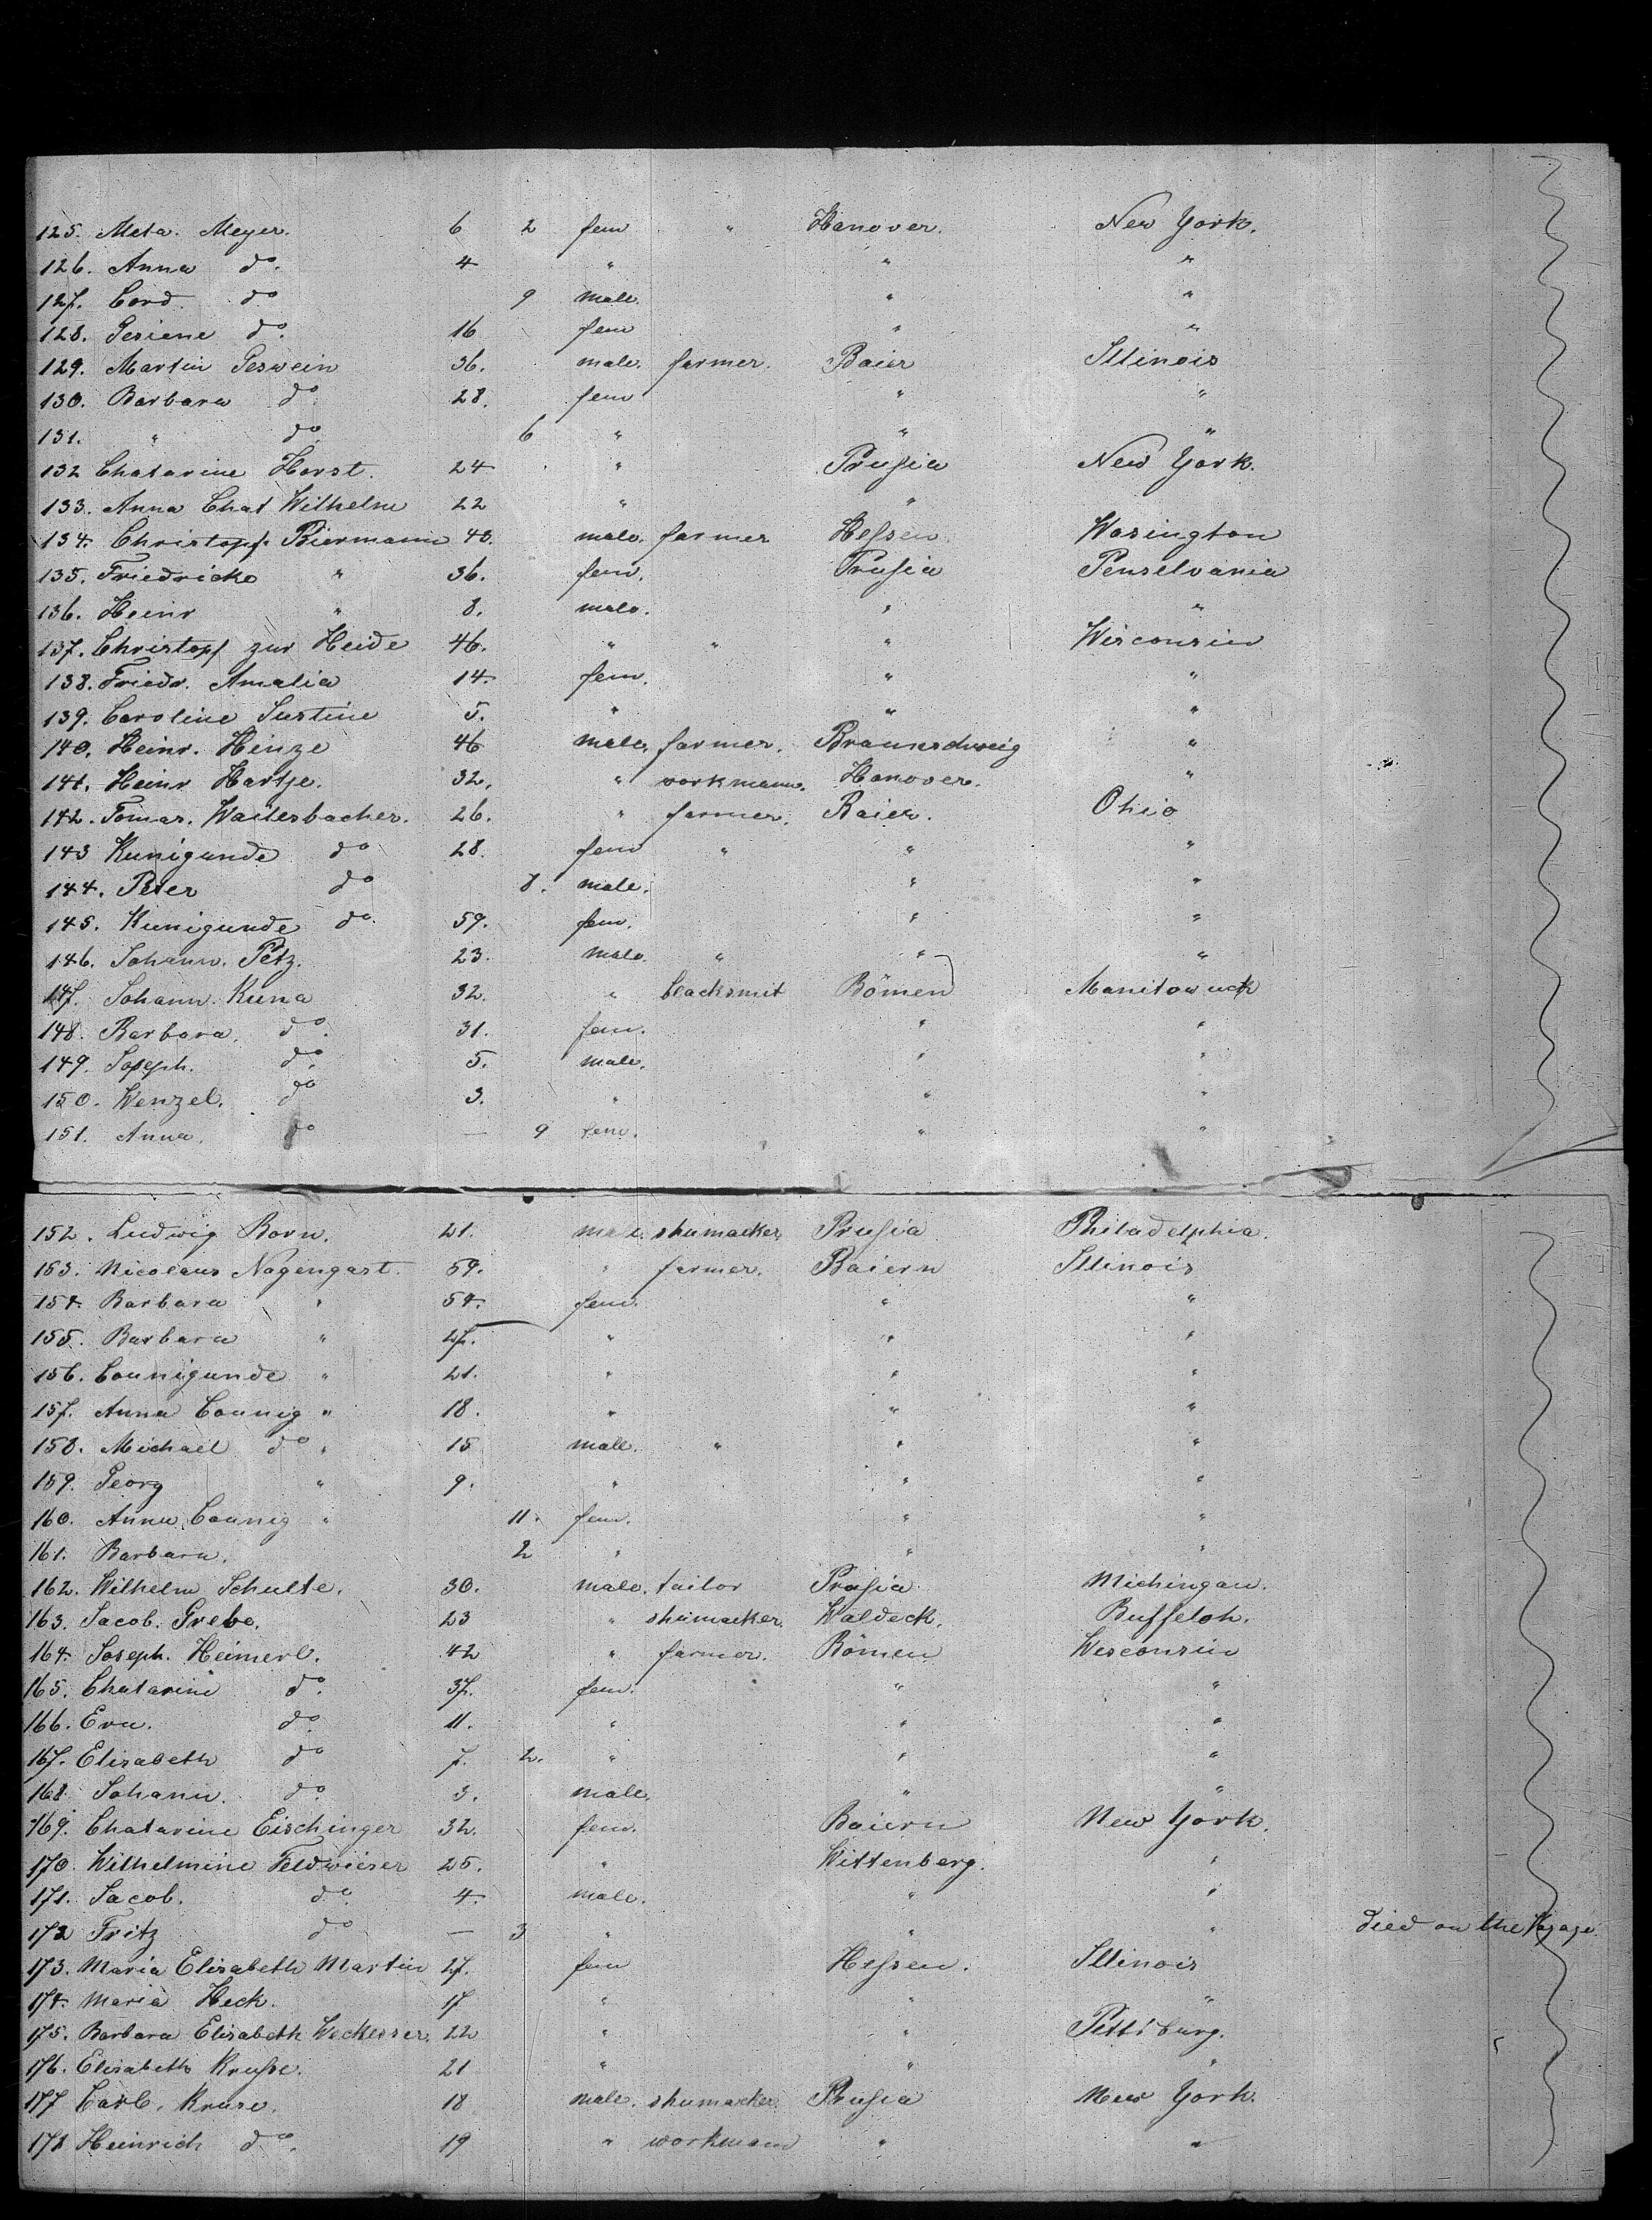 125. Meta. Meyer. 6 2 fem " Hanover. New York.
126. Anna do. 4 " " "
127. Cord. do 9 male. " "
128. Gesiene do. 16 fem " "
129. Martin Geswein 36. male. farmer. Baier Illinois
130. Barbara do. 28. fem " "
131. " do. 6 " " "
132 Chatarine Horst. 24 " Prusia New York.
133. Anna Chat Wilhelm 22 " "
134. Christopf. Biermann 40. male. farmer Hessen. Wasington
135. Friedricke " 36. fem. Prusia Penselvania
136. Heinr " 8. male. " "
137. Christopf zur Heide 46. " " " Wisconsin
138. Friedr. Amalia 14. fem. " "
139. Caroline Justine 5. " " "
140. Heinr. Heinze 46 male. farmer. Braunschweig "
141. Heinr Hartje. 32. " workmann. Hanover. "
142. Tomas. Waitersbacher. 26. " farmer. Baier. Ohio
143 Kunigunde do 28. fem " " "
144. Peter do 8. male. " "
145. Kunigunde do. 59. fem. " "
146. Johann. Petz. 23. male. " " "
147. Johann. Kuna 32. " blacksmit Bömen Manitowuck
148. Barbara. do. 31. fem. " "
149. Joseph. do. 5. male. " "
150. Wenzel. do 3. " " "
151. Anna. do — 9 fem. " "
152. Ludwig Born. 21. male. shumacker. Prusia Philadelphia.
153. Nicolaus Nagengast. 59. " farmer. Baiern Illinois
154. Barbara " 54. fem. " "
155. Barbara " 27. " " "
156. Counigunde " 21. " " "
157. Anna Counig " 18. " " "
158. Michael do " 15 male. " " "
159. Georg " 9. " " "
160. Anna Counig " 11. fem. " "
161. Barbara. 2 " " "
162. Wilhelm Schulte. 30. male. tailor Prusia Michingan.
163. Jacob. Grebe. 23 " shumacker. Waldeck. Buffeloh.
164. Joseph. Heimerl. 42 " farmer. Bömen Wisconsin
165. Chatarine do. 37. fem. " "
166. Eva. do. 11. " " "
167. Elisabeth do 7. 2. " " "
168. Johann. do. 3. male. " "
169. Chatarine Eischinger 32. fem. Baiern New York.
170. Wilhelmine Feldwieser 25. " Wittenberg. "
171. Jacob. do. 4. male. " "
172 Fritz do — 3 " " " died on the Voyage.
173. Maria Elisabeth Martin 27. fem Hessen. Illinois
174. Maria Heck. 17 " " "
175. Barbara Elisabeth Weckesser. 22 " " Pittsburg.
176. Elisabeth Kruse. 21 " " "
177 Carl. Kruse. 18 male. shumacker. Prusia New York.
178 Heinrich do. 19 " workmann " "